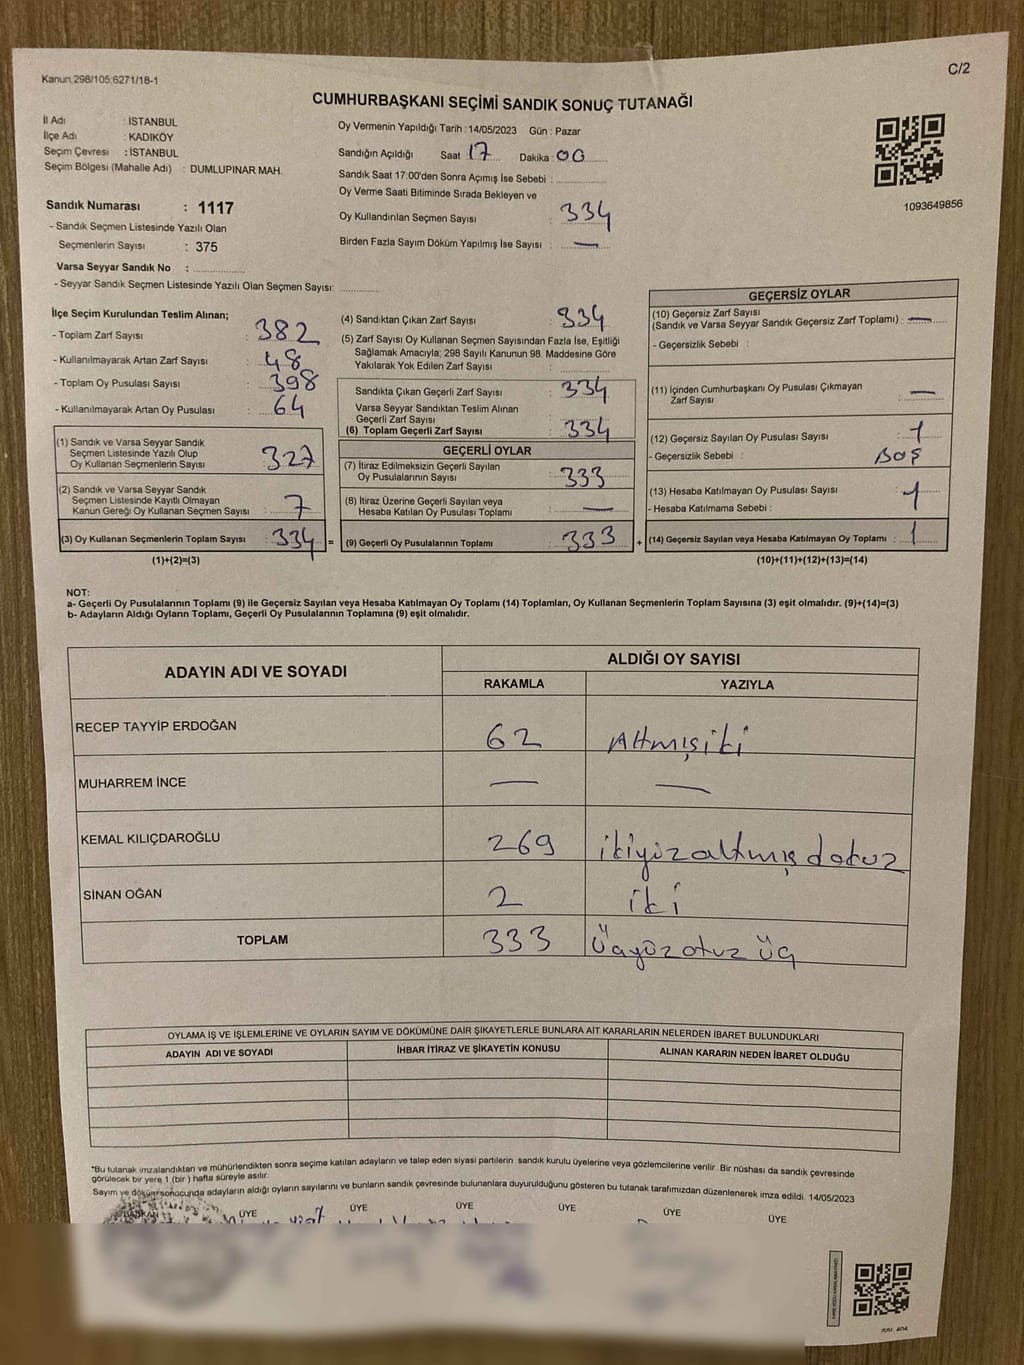 C/2
Kanun 298/105;6271/18-1
CUMHURBAŞKANI SEÇİMİ SANDIK SONUÇ TUTANAĞI
İl Adı : İSTANBUL
İlçe Adı : KADIKÖY
Seçim Çevresi : İSTANBUL
Seçim Bölgesi (Mahalle Adı) : DUMLUPINAR MAH.
Sandık Numarası : 1117
- Sandık Seçmen Listesinde Yazılı Olan
Seçmenlerin Sayısı : 375
Varsa Seyyar Sandık No :
- Seyyar Sandık Seçmen Listesinde Yazılı Olan Seçmen Sayısı:
Oy Vermenin Yapıldığı Tarih : 14/05/2023 Gün : Pazar
Sandığın Açıldığı Saat 17 Dakika 00
Sandık Saat 17:00'den Sonra Açımış İse Sebebi :
Oy Verme Saati Bitiminde Sırada Bekleyen ve
Oy Kullandırılan Seçmen Sayısı : 334
Birden Fazla Sayım Döküm Yapılmış İse Sayısı : —
1093649856
İlçe Seçim Kurulundan Teslim Alınan;
- Toplam Zarf Sayısı : 382
- Kullanılmayarak Artan Zarf Sayısı : 48
- Toplam Oy Pusulası Sayısı : 398
- Kullanılmayarak Artan Oy Pusulası : 64
(1) Sandık ve Varsa Seyyar Sandık
Seçmen Listesinde Yazılı Olup
Oy Kullanan Seçmenlerin Sayısı : 327
(2) Sandık ve Varsa Seyyar Sandık
Seçmen Listesinde Kayıtlı Olmayan
Kanun Gereği Oy Kullanan Seçmen Sayısı : 7
(3) Oy Kullanan Seçmenlerin Toplam Sayısı : 334 =
(1)+(2)=(3)
(4) Sandıktan Çıkan Zarf Sayısı : 334
(5) Zarf Sayısı Oy Kullanan Seçmen Sayısından Fazla İse, Eşitliği
Sağlamak Amacıyla; 298 Sayılı Kanunun 98. Maddesine Göre
Yakılarak Yok Edilen Zarf Sayısı :
Sandıkta Çıkan Geçerli Zarf Sayısı : 334
Varsa Seyyar Sandıktan Teslim Alınan
Geçerli Zarf Sayısı :
(6) Toplam Geçerli Zarf Sayısı : 334
GEÇERLİ OYLAR
(7) İtiraz Edilmeksizin Geçerli Sayılan
Oy Pusulalarının Sayısı : 333
(8) İtiraz Üzerine Geçerli Sayılan veya
Hesaba Katılan Oy Pusulası Toplamı : —
(9) Geçerli Oy Pusulalarının Toplamı : 333 +
GEÇERSİZ OYLAR
(10) Geçersiz Zarf Sayısı
(Sandık ve Varsa Seyyar Sandık Geçersiz Zarf Toplamı) : —
- Geçersizlik Sebebi :
(11) İçinden Cumhurbaşkanı Oy Pusulası Çıkmayan
Zarf Sayısı : —
(12) Geçersiz Sayılan Oy Pusulası Sayısı : 1
- Geçersizlik Sebebi : BOŞ
(13) Hesaba Katılmayan Oy Pusulası Sayısı : 1
- Hesaba Katılmama Sebebi :
(14) Geçersiz Sayılan veya Hesaba Katılmayan Oy Toplamı : 1
(10)+(11)+(12)+(13)=(14)
NOT:
a- Geçerli Oy Pusulalarının Toplamı (9) ile Geçersiz Sayılan veya Hesaba Katılmayan Oy Toplamı (14) Toplamları, Oy Kullanan Seçmenlerin Toplam Sayısına (3) eşit olmalıdır. (9)+(14)=(3)
b- Adayların Aldığı Oyların Toplamı, Geçerli Oy Pusulalarının Toplamına (9) eşit olmalıdır.
ADAYIN ADI VE SOYADI ALDIĞI OY SAYISI
RAKAMLA YAZIYLA
RECEP TAYYİP ERDOĞAN 62 Altmışiki
MUHARREM İNCE — —
KEMAL KILIÇDAROĞLU 269 ikiyüzaltmışdokuz
SİNAN OĞAN 2 iki
TOPLAM 333 Üçyüzotuz üç
OYLAMA İŞ VE İŞLEMLERİNE VE OYLARIN SAYIM VE DÖKÜMÜNE DAİR ŞİKAYETLERLE BUNLARA AİT KARARLARIN NELERDEN İBARET BULUNDUKLARI
ADAYIN ADI VE SOYADI İHBAR İTİRAZ VE ŞİKAYETİN KONUSU ALINAN KARARIN NEDEN İBARET OLDUĞU
*Bu tutanak imzalandıktan ve mühürlendikten sonra seçime katılan adayların ve talep eden siyasi partilerin sandık kurulu üyelerine veya gözlemcilerine verilir. Bir nüshası da sandık çevresinde
görülecek bir yere 1 (bir) hafta süreyle asılır.
Sayım ve döküm sonucunda adayların aldığı oyların sayılarını ve bunların sandık çevresinde bulunanlara duyurulduğunu gösteren bu tutanak tarafımızdan düzenlenerek imza edildi. 14/05/2023
BAŞKAN ÜYE ÜYE ÜYE ÜYE ÜYE ÜYE